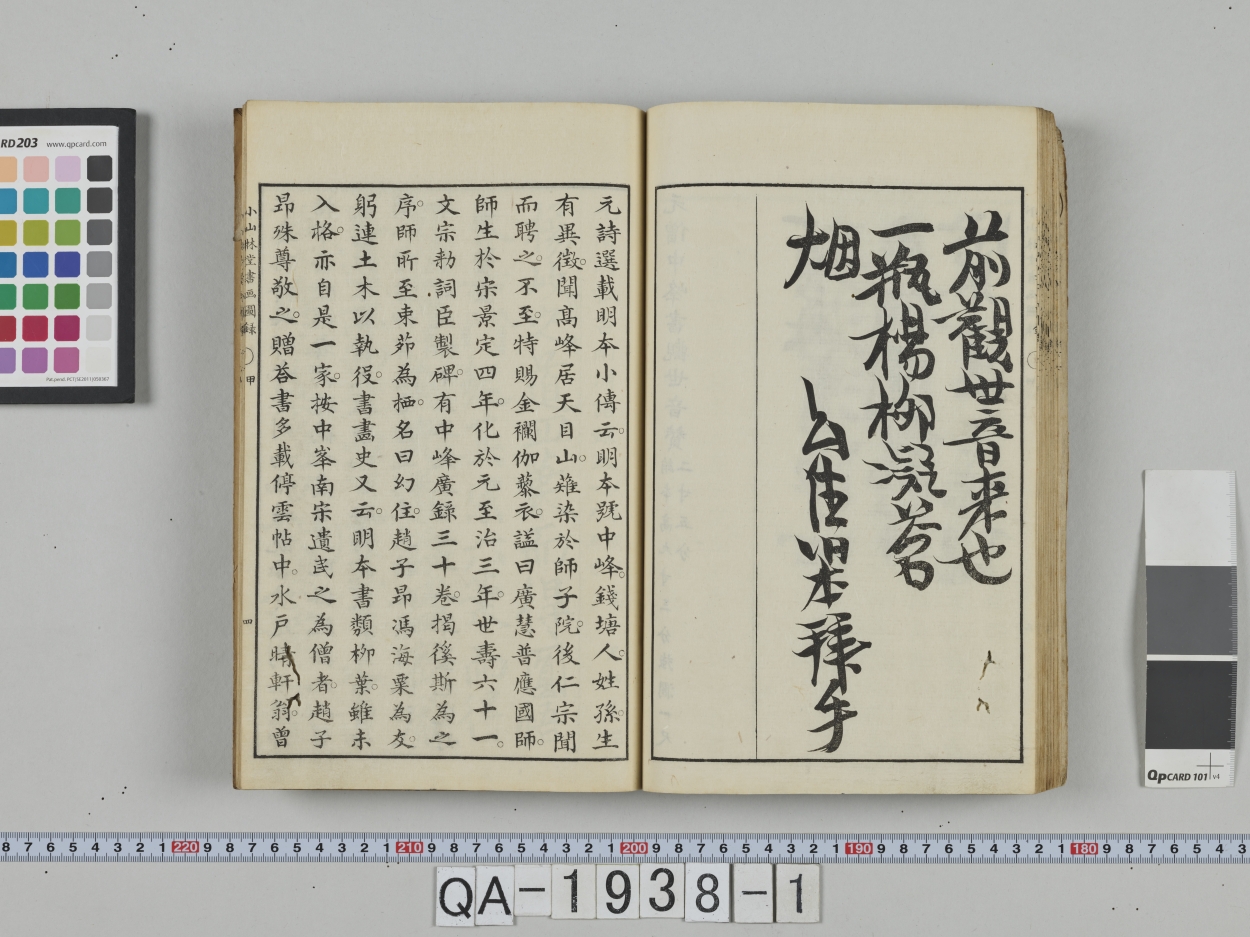 前觀世音来也
一瓶楊柳凝茗
烟
幻住明本拜手
元詩選載明本小傳云。明本號中峰。錢塘人。姓孫。生
有異徴。聞髙峰居天目山。薙染於師子院。後仁宗聞
而聘之。不至。特賜金襴伽藜衣。謚曰廣慧普應國師。
師生於宋景定四年。化於元至治三年。世壽六十一。
文宗勑詞臣製碑。有中峰廣錄三十卷。揭徯斯為之
序。師所至束茆為栖。名曰幻住。趙子昂馮海粟為友。
躬連土木以執役。書畵史又云。明本書類栁葉。雖未
入格。亦自是一家。按中峯南宋遺民之為僧者。趙子
昂殊尊敬之。贈荅書多載停雲帖中。水戶晴軒翁。曾
小山林堂書画圖録 甲
四
RD203 www.qpcard.com
QPCARD 101 v4
8 7 6 5 4 3 2 1 220 9 8 7 6 5 4 3 2 1 210 9 8 7 6 5 4 3 2 1 200 9 8 7 6 5 4 3 2 1 190 9 8 7 6 5 4 3 2 1 180 9 8 7 6 5 4 3
QA-1938-1